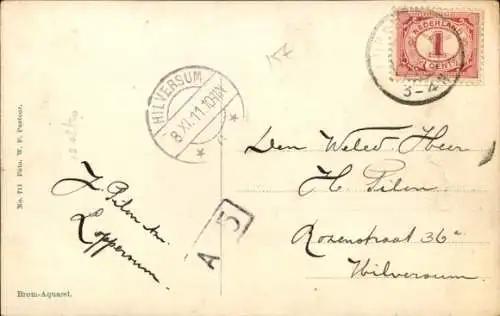 157
NEDERLAND
1
CENT
3-4
HILVERSUM
8 XI.11.10-11V
Den Weled. Heer
H. Pilon
Rozenstraat 36a
Hilversum
J. Pilon
Loppersum.
A 5
No. 711 Phin. W. F. Pastoor.
Brom-Aquarel.